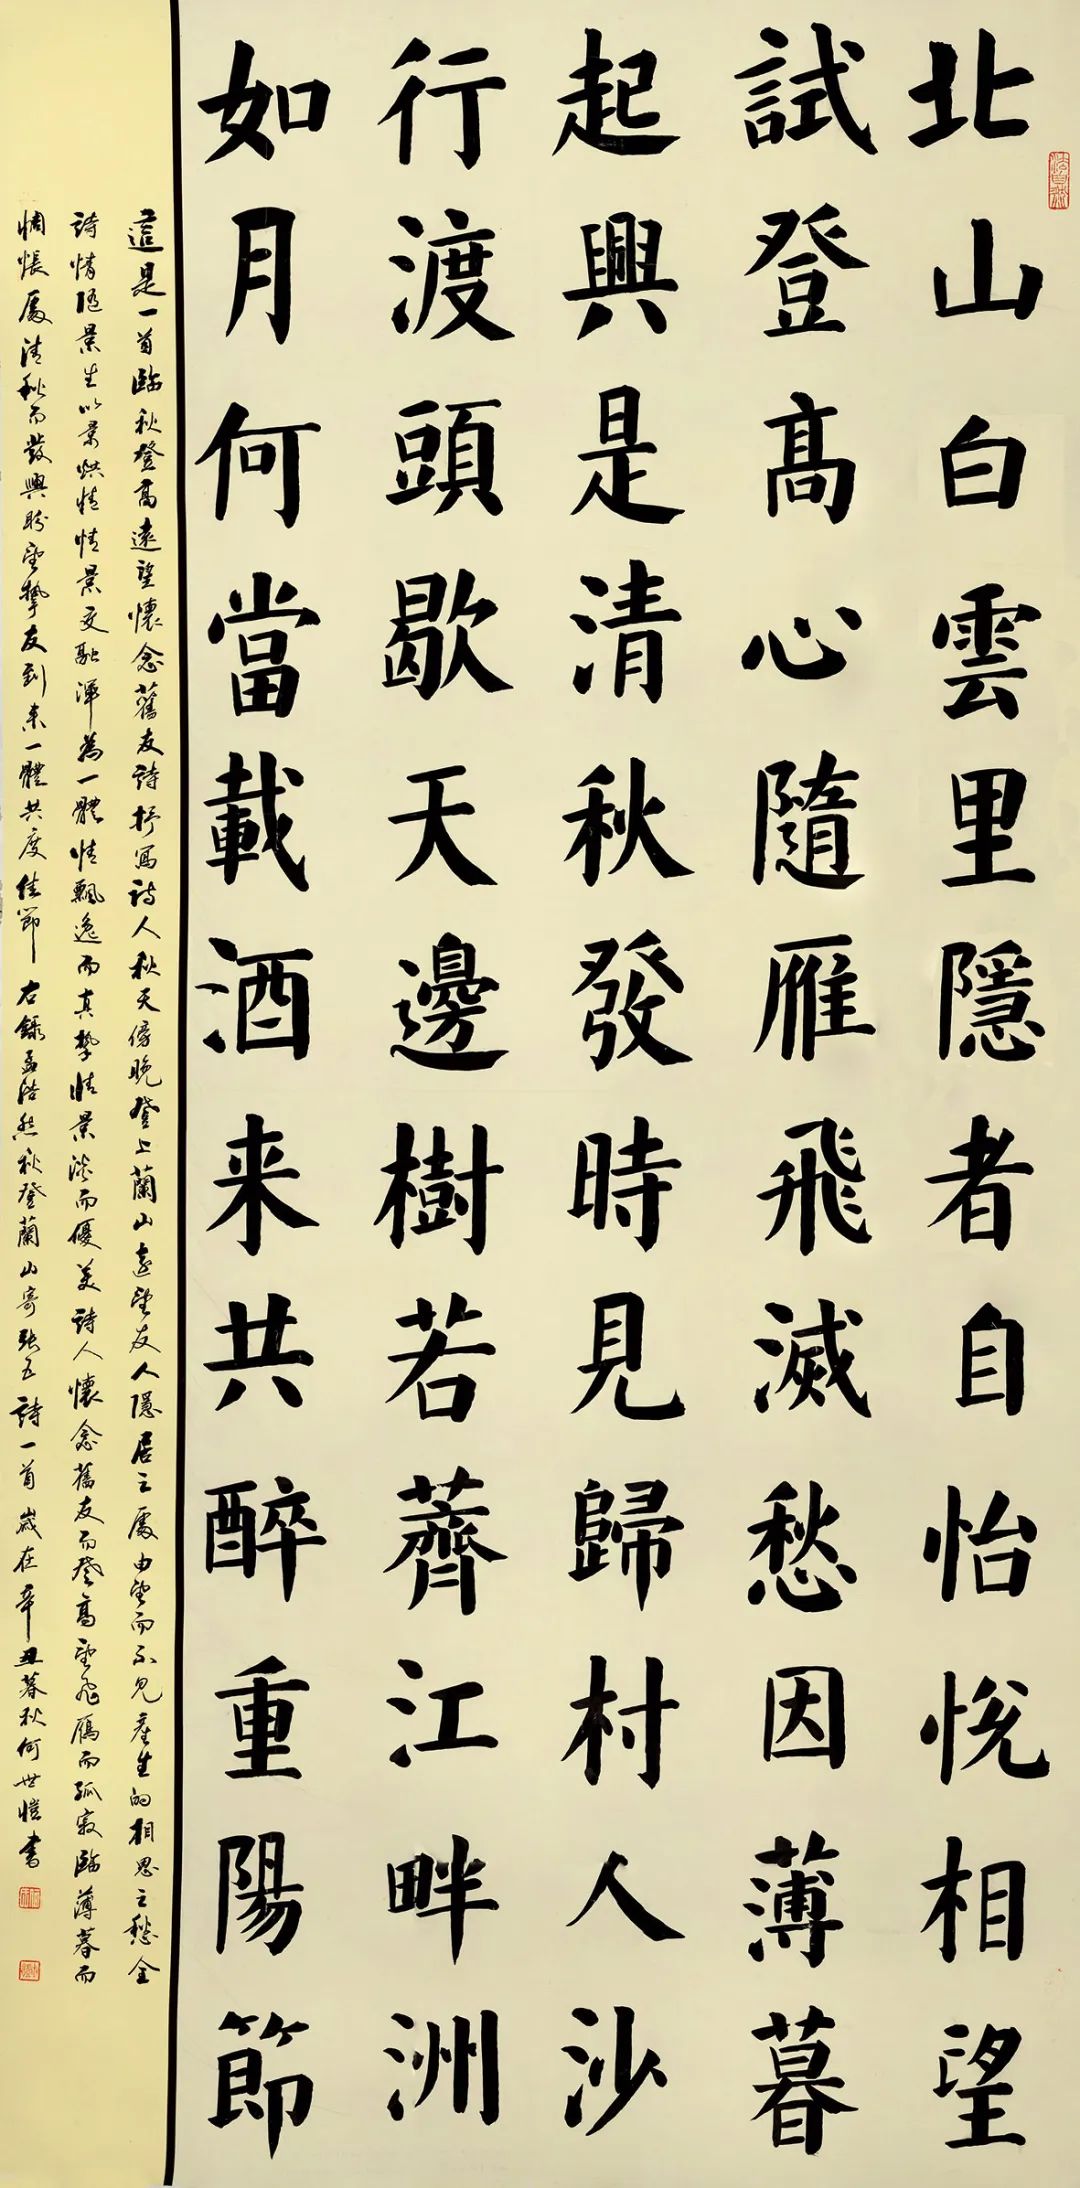 北山白雲里隱者自怡悅相望
試登高心隨雁飛滅愁因薄暮
起興是清秋發時見歸村人沙
行渡頭歇天邊樹若薺江畔洲
如月何當載酒来共醉重陽節
這是一首臨秋登高遠望懷念舊友詩抒寫詩人秋天傍晚登上蘭山遠望友人隱居之處由望而不見產生的相思之愁全
詩情隨景生以景烘情情景交融渾為一體情飄逸而真摯情景淡而優美詩人懷念舊友而登高望飛雁而孤寂臨薄暮而
惆悵處清秋而發興盼望摯友到来一體共度佳節右錄孟浩然秋登蘭山寄張五詩一首歲在辛丑暮秋何世愷書